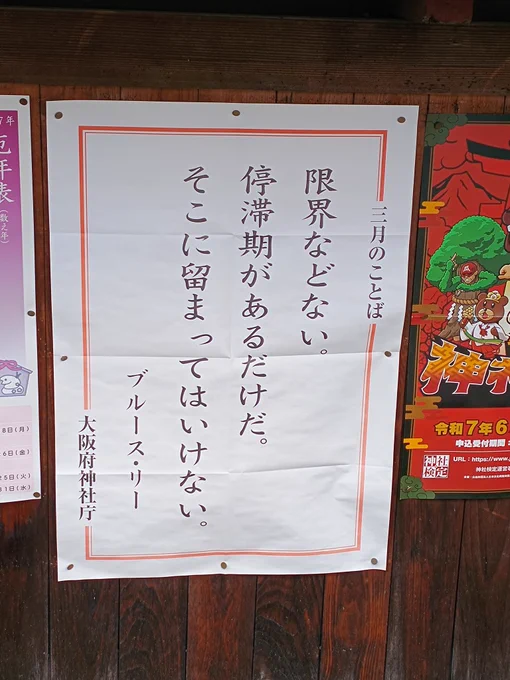 三月のことば
限界などない。
停滞期があるだけだ。
そこに留まってはいけない。
ブルース・リー
大阪府神社庁
7年
厄年表
(数え年)
8日(月)
6日(金)
5日(火)
1日(水)
神社
令和7年6
申込受付期間:
神社検定
URL:https://www.